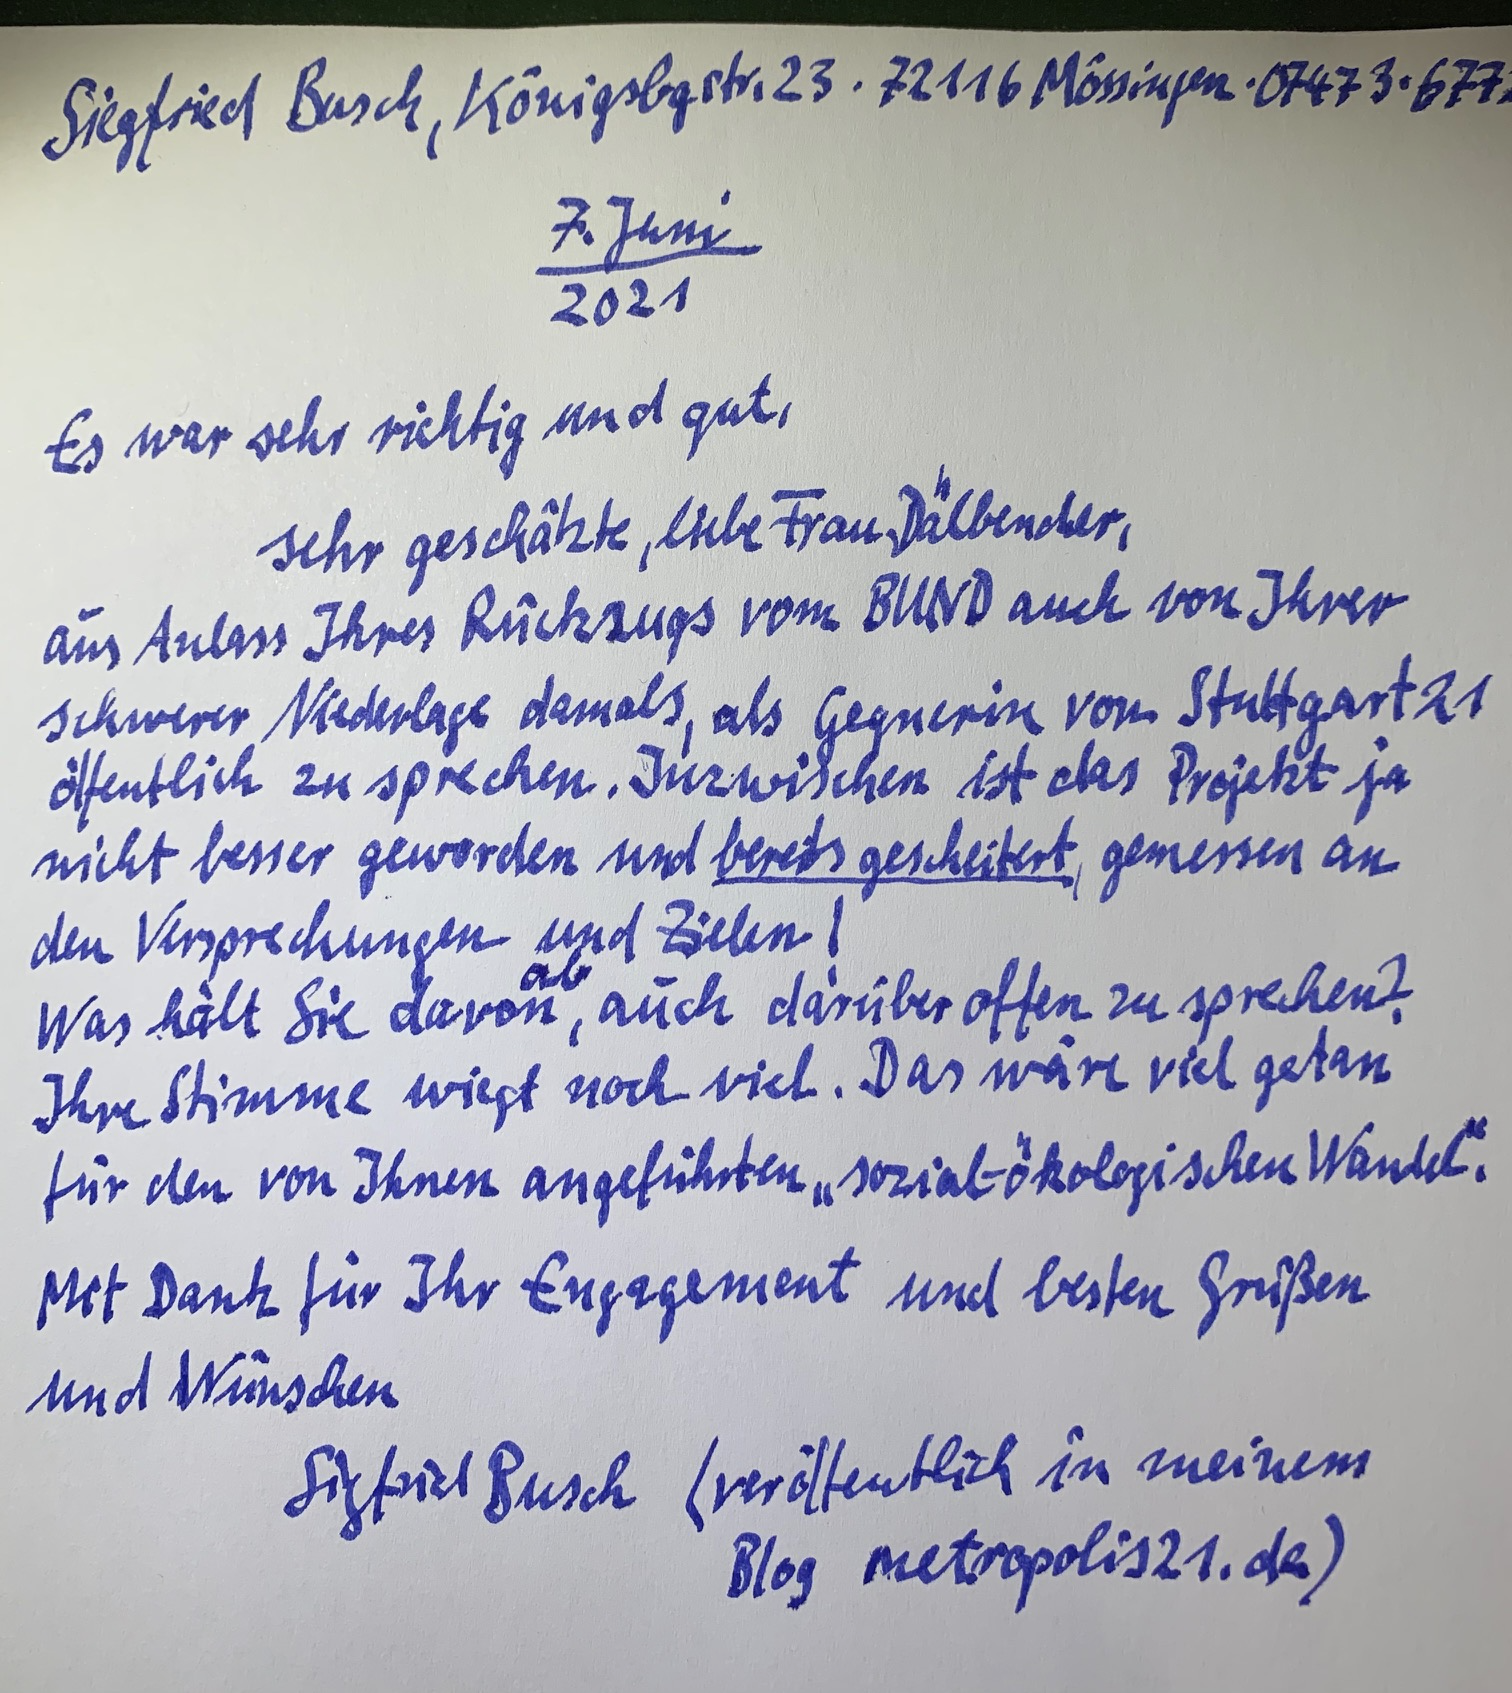 Siegfried Busch, Königsbgstr. 23 · 72116 Mössingen · 07473 · 677
7. Juni
2021
Es war sehr richtig und gut,
sehr geschätzte, liebe Frau Dälbender,
aus Anlass Ihres Rückzugs vom BUND auch von Ihrer
schweren Niederlage damals, als Gegnerin von Stuttgart 21
öffentlich zu sprechen. Inzwischen ist das Projekt ja
nicht besser geworden und bereits gescheitert, gemessen an
den Versprechungen und Zielen!
Was hält Sie davon ab, auch darüber offen zu sprechen?
Ihre Stimme wiegt noch viel. Das wäre viel getan
für den von Ihnen angeführten „sozial-ökologischen Wandel“.
Mit Dank für Ihr Engagement und besten Grüßen
und Wünschen
Sigfried Busch (veröffentlich in meinem
Blog metropolis21.de)